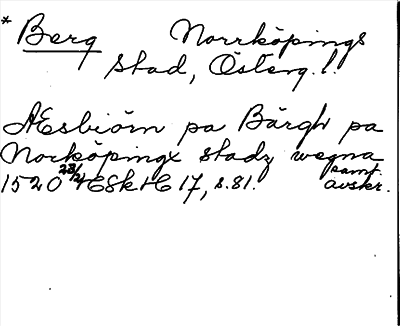 * Berg Norrköpings
stad, Österg.l.
Æsbiörn pa Bärgh pa
Norköpingx stadz wegna
1520 23/4 ESk HC 17, s. 81. samt. avskr.